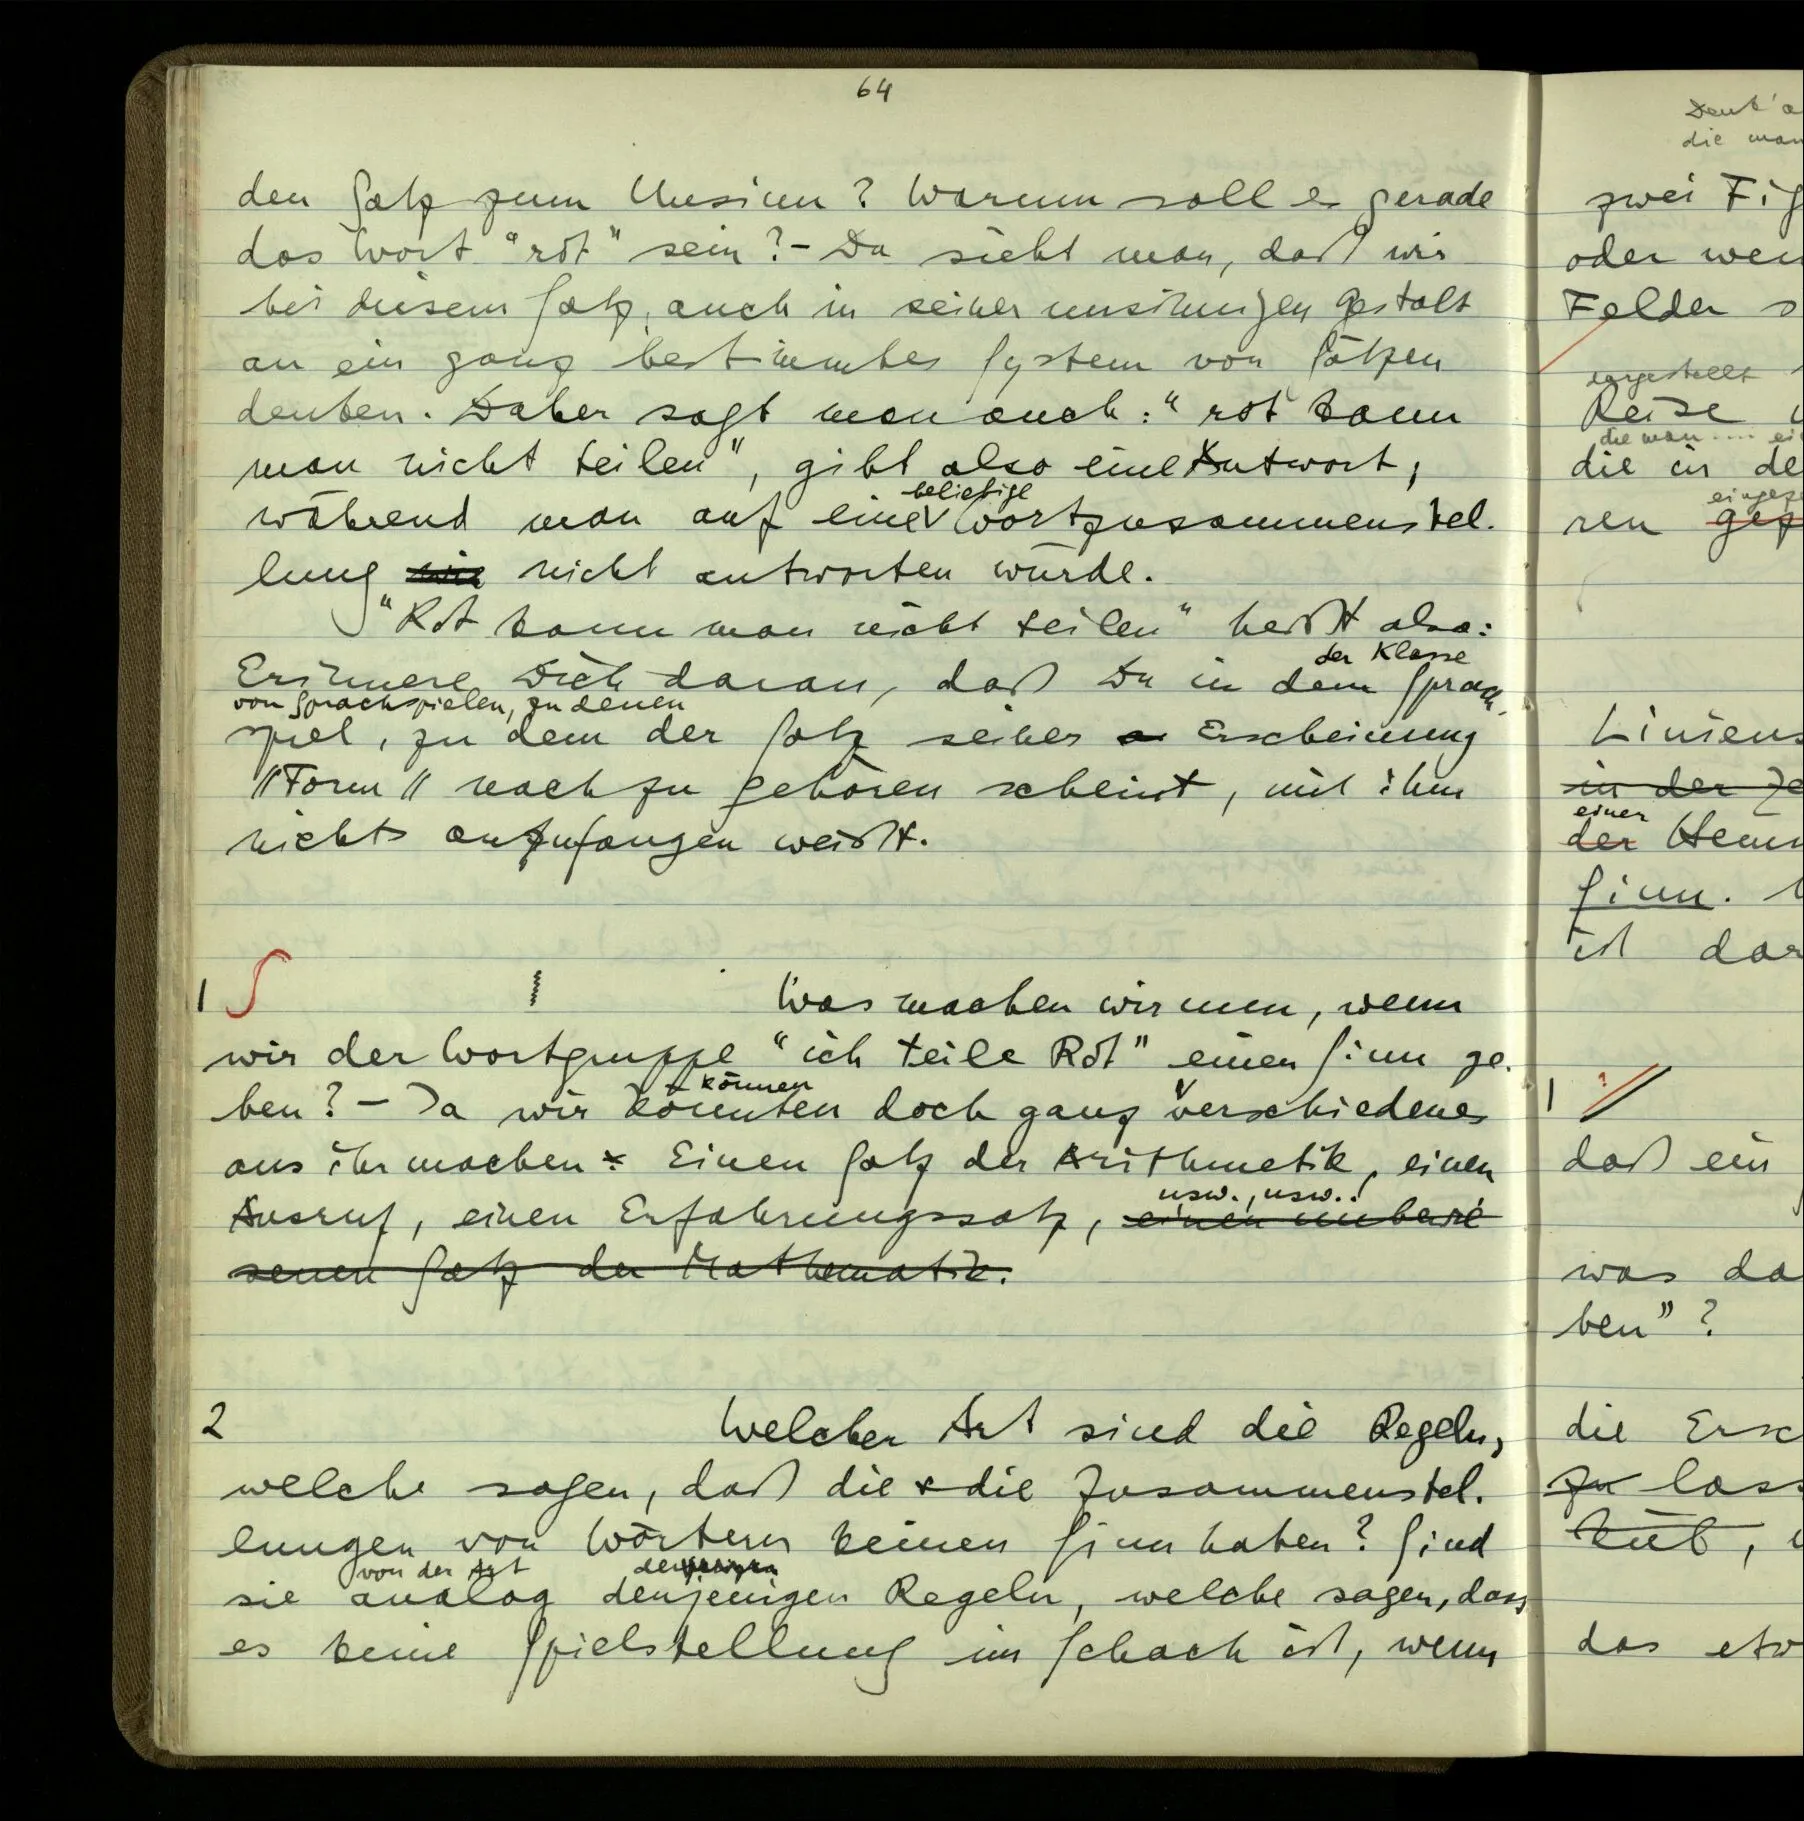 64
den Satz zum Unsinn? Warum soll es gerade
das Wort "rot" sein? – Da sieht man, daß wir
bei diesem Satz, auch in seiner unsinnigen Gestalt
an ein ganz bestimmtes System von Sätzen
denken. Daher sagt man auch: "rot kann
man nicht teilen", gibt also eine Antwort,
beliebige
während man auf eine Wortzusammenstel-
lung nicht antworten würde.
"Rot kann man nicht teilen" heißt also:
der Klasse
Erinnere Dich daran, daß Du in dem Sprach-
von Sprachspielen, zu denen
spiel, zu dem der Satz seiner Erscheinung
"Form" nach zu gehören scheint, mit ihm
nichts anzufangen weißt.
1 ∫ Was machen wir nun, wenn
wir der Wortgruppe "ich teile Rot" einen Sinn ge-
können
ben? – Ja wir könnten doch ganz verschiedenes
aus ihr machen: Einen Satz der Arithmetik, einen
usw., usw..
Ausruf, einen Erfahrungssatz, einen unbewie
senen Satz der Mathematik.
2 Welcher Art sind die Regeln,
welche sagen, daß die & die Zusammenstel-
lungen von Wörtern keinen Sinn haben? Sind
von der Art derjenigen
sie analog denjenigen Regeln, welche sagen, dass
es keine Spielstellung im Schach ist, wenn
die man
zwei Fig
oder wen
Felder s
dargestellt
Reise
die man .... ei
die in de
eingez
ren gez
Liniens
in der Ze
einer
der Hemm
Sinn.
ist dar
1 ? //
daß ein
was da
ben"?
die Ersc
zu lass
das etw